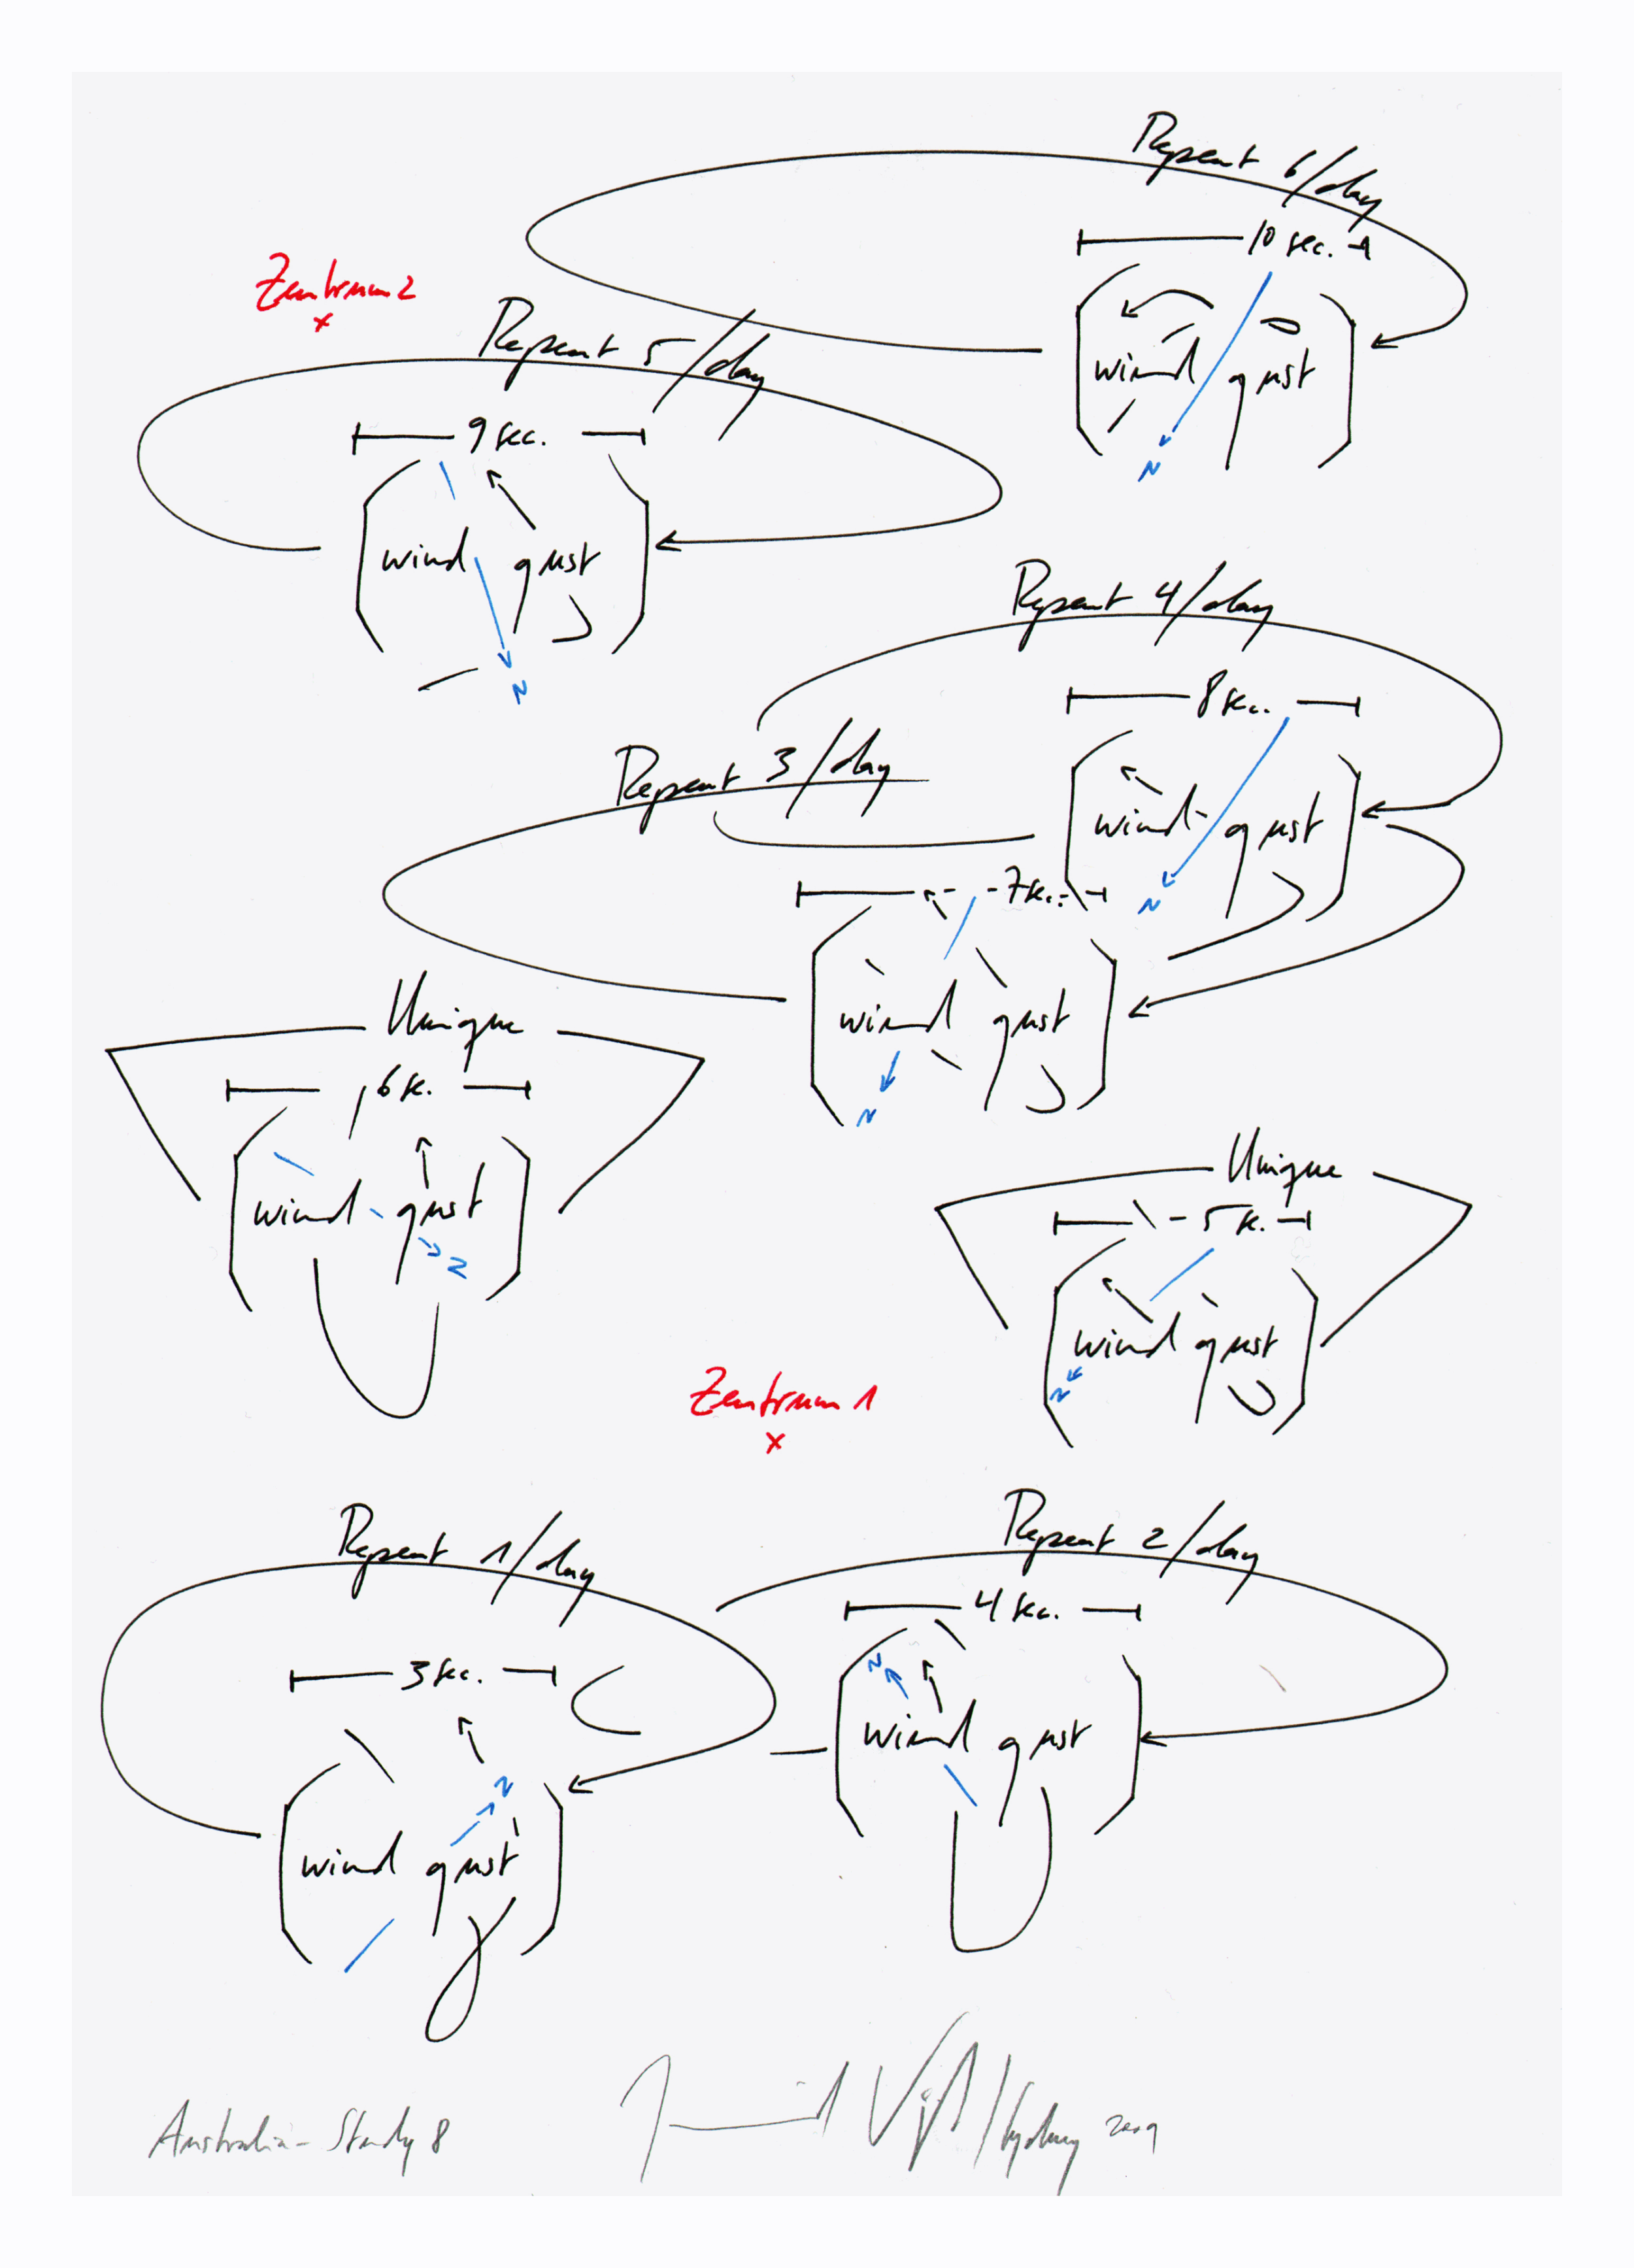 Repeat 6/day
10 sec.
wind gust
N
Zentrum 2
x
Repeat 5/day
9 sec.
wind gust
N
Repeat 4/day
8 sec.
wind gust
N
Repeat 3/day
7 sec.
wind gust
N
Unique
6 sec.
wind gust
N
Unique
5 sec.
wind gust
N
Zentrum 1
x
Repeat 1/day
3 sec.
N
wind gust
Repeat 2/day
4 sec.
N
wind gust
Australia - Study 8
Sydney 2009